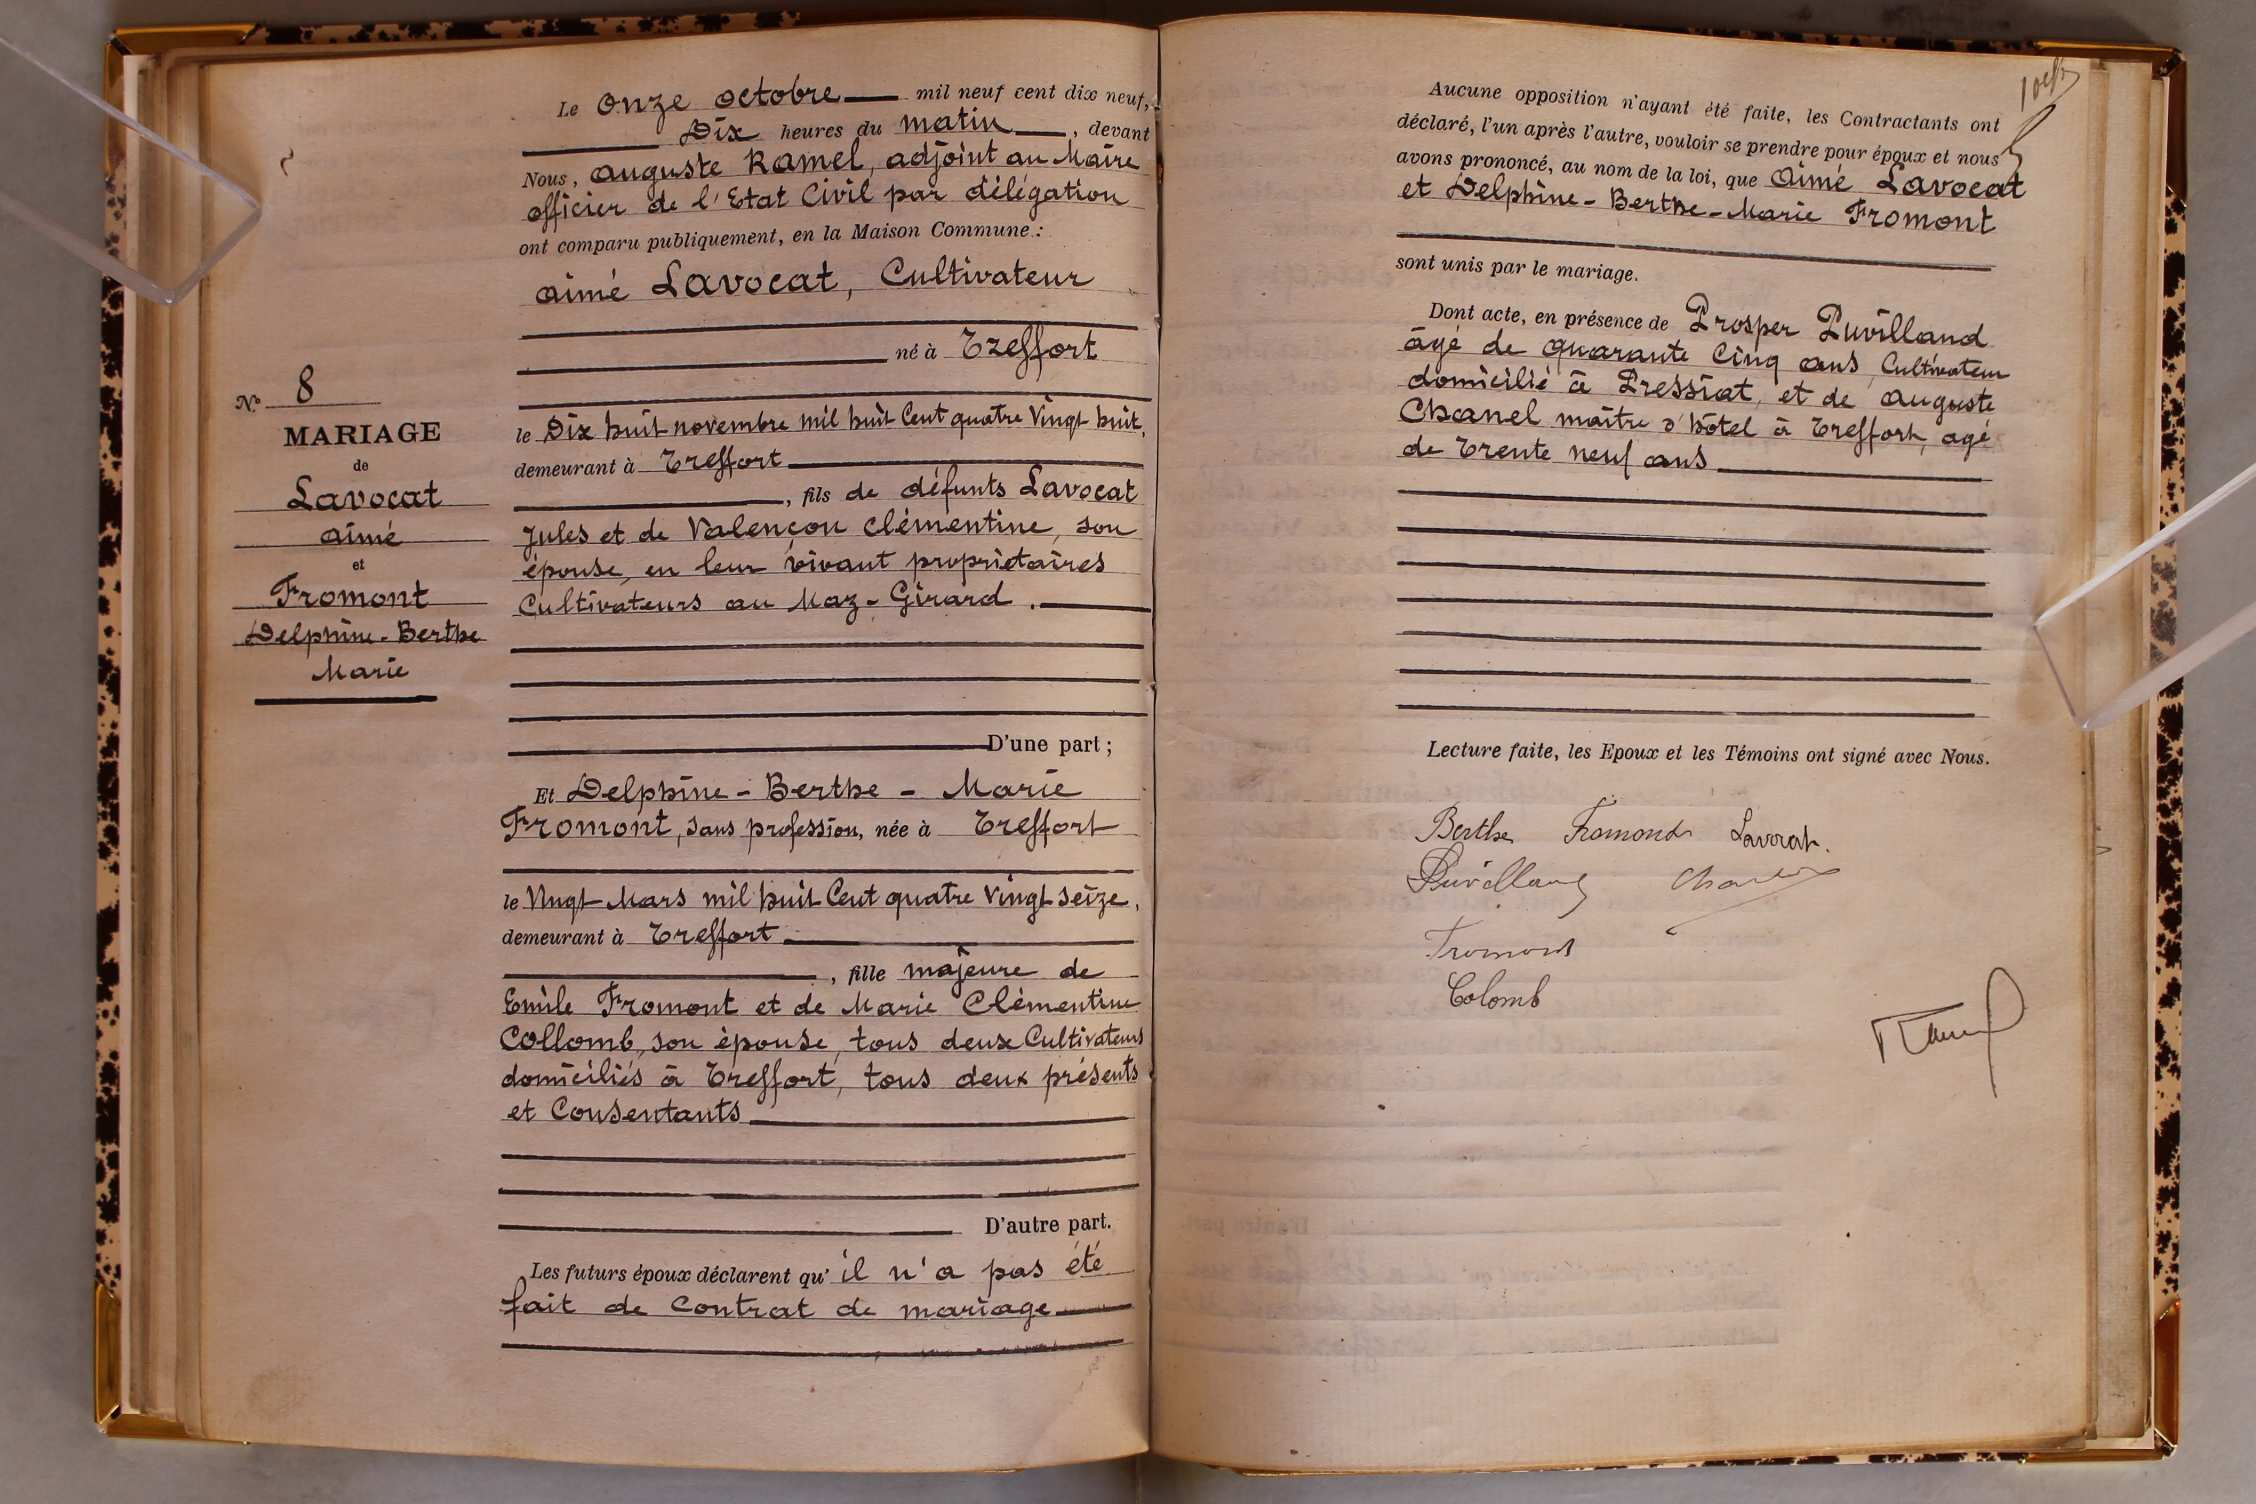 Le Onze Octobre mil neuf cent dix neuf,
Dix heures du matin, devant
Nous, Auguste Ramel, adjoint au Maire
officier de l'Etat Civil par délégation
ont comparu publiquement, en la Maison Commune :
Aimé Lavocat, Cultivateur
né à Treffort
le Dix huit novembre mil huit Cent quatre Vingt huit,
demeurant à Treffort
, fils de défunts Lavocat
Jules et de Valençon Clémentine, son
épouse, en leur vivant propriétaires
Cultivateurs au Maz-Girard.
D'une part ;
N° 8
MARIAGE
de
Lavocat
Aimé
et
Fromont
Delphine-Berthe
Marie
Et Delphine-Berthe-Marie
Fromont, sans profession, née à Treffort
le Vingt Mars mil huit Cent quatre Vingt seize,
demeurant à Treffort
, fille majeure de
Emile Fromont et de Marie Clémentine
Collomb, son épouse, tous deux Cultivateurs
domiciliés à Treffort, tous deux présents
et Consentants
D'autre part.
Les futurs époux déclarent qu'il n'a pas été
fait de Contrat de mariage
Aucune opposition n'ayant été faite, les Contractants ont
déclaré, l'un après l'autre, vouloir se prendre pour époux et nous
avons prononcé, au nom de la loi, que Aimé Lavocat
et Delphine-Berthe-Marie Fromont
sont unis par le mariage.
Dont acte, en présence de Prosper Puvilland
âgé de quarante Cinq ans, Cultivateur
domicilié à Pressiat, et de Auguste
Chanel maître d'hôtel à Treffort, agé
de Trente neuf ans
Lecture faite, les Epoux et les Témoins ont signé avec Nous.
Berthe Fromont Lavocat.
Puvilland Chanel
Fromont
Colomb
Ramel